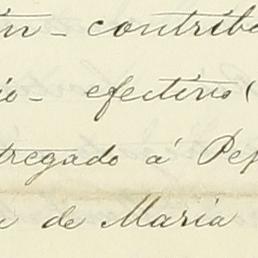 in - contrib
io - efectivo (
tregado á Pe
a de Maria